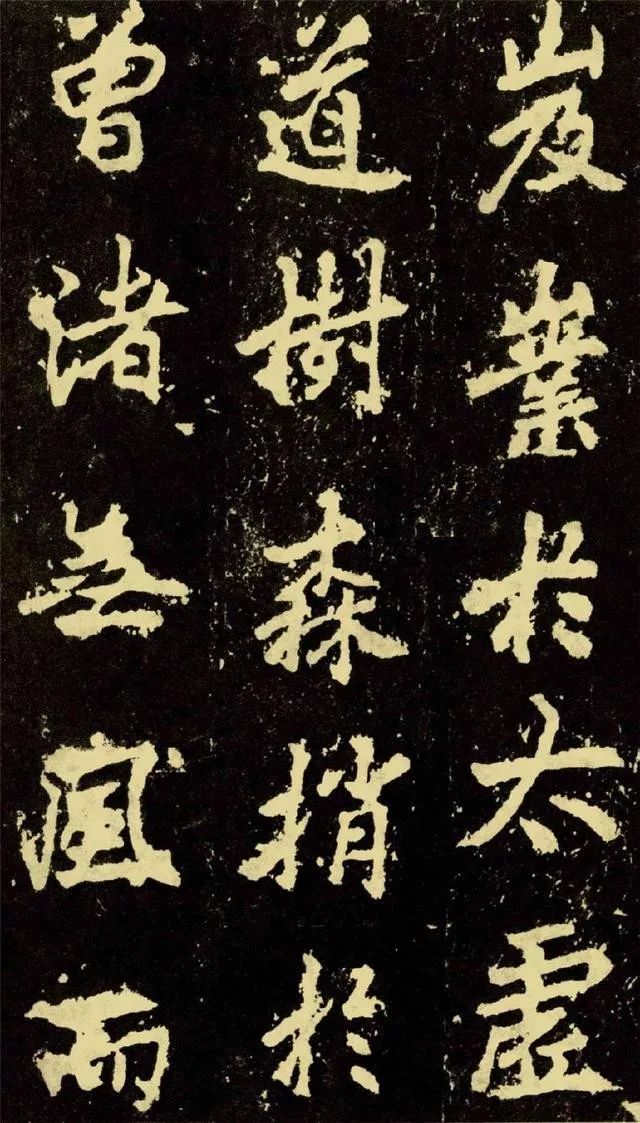 岌業於太虛
道樹森梢於
曾渚無風而